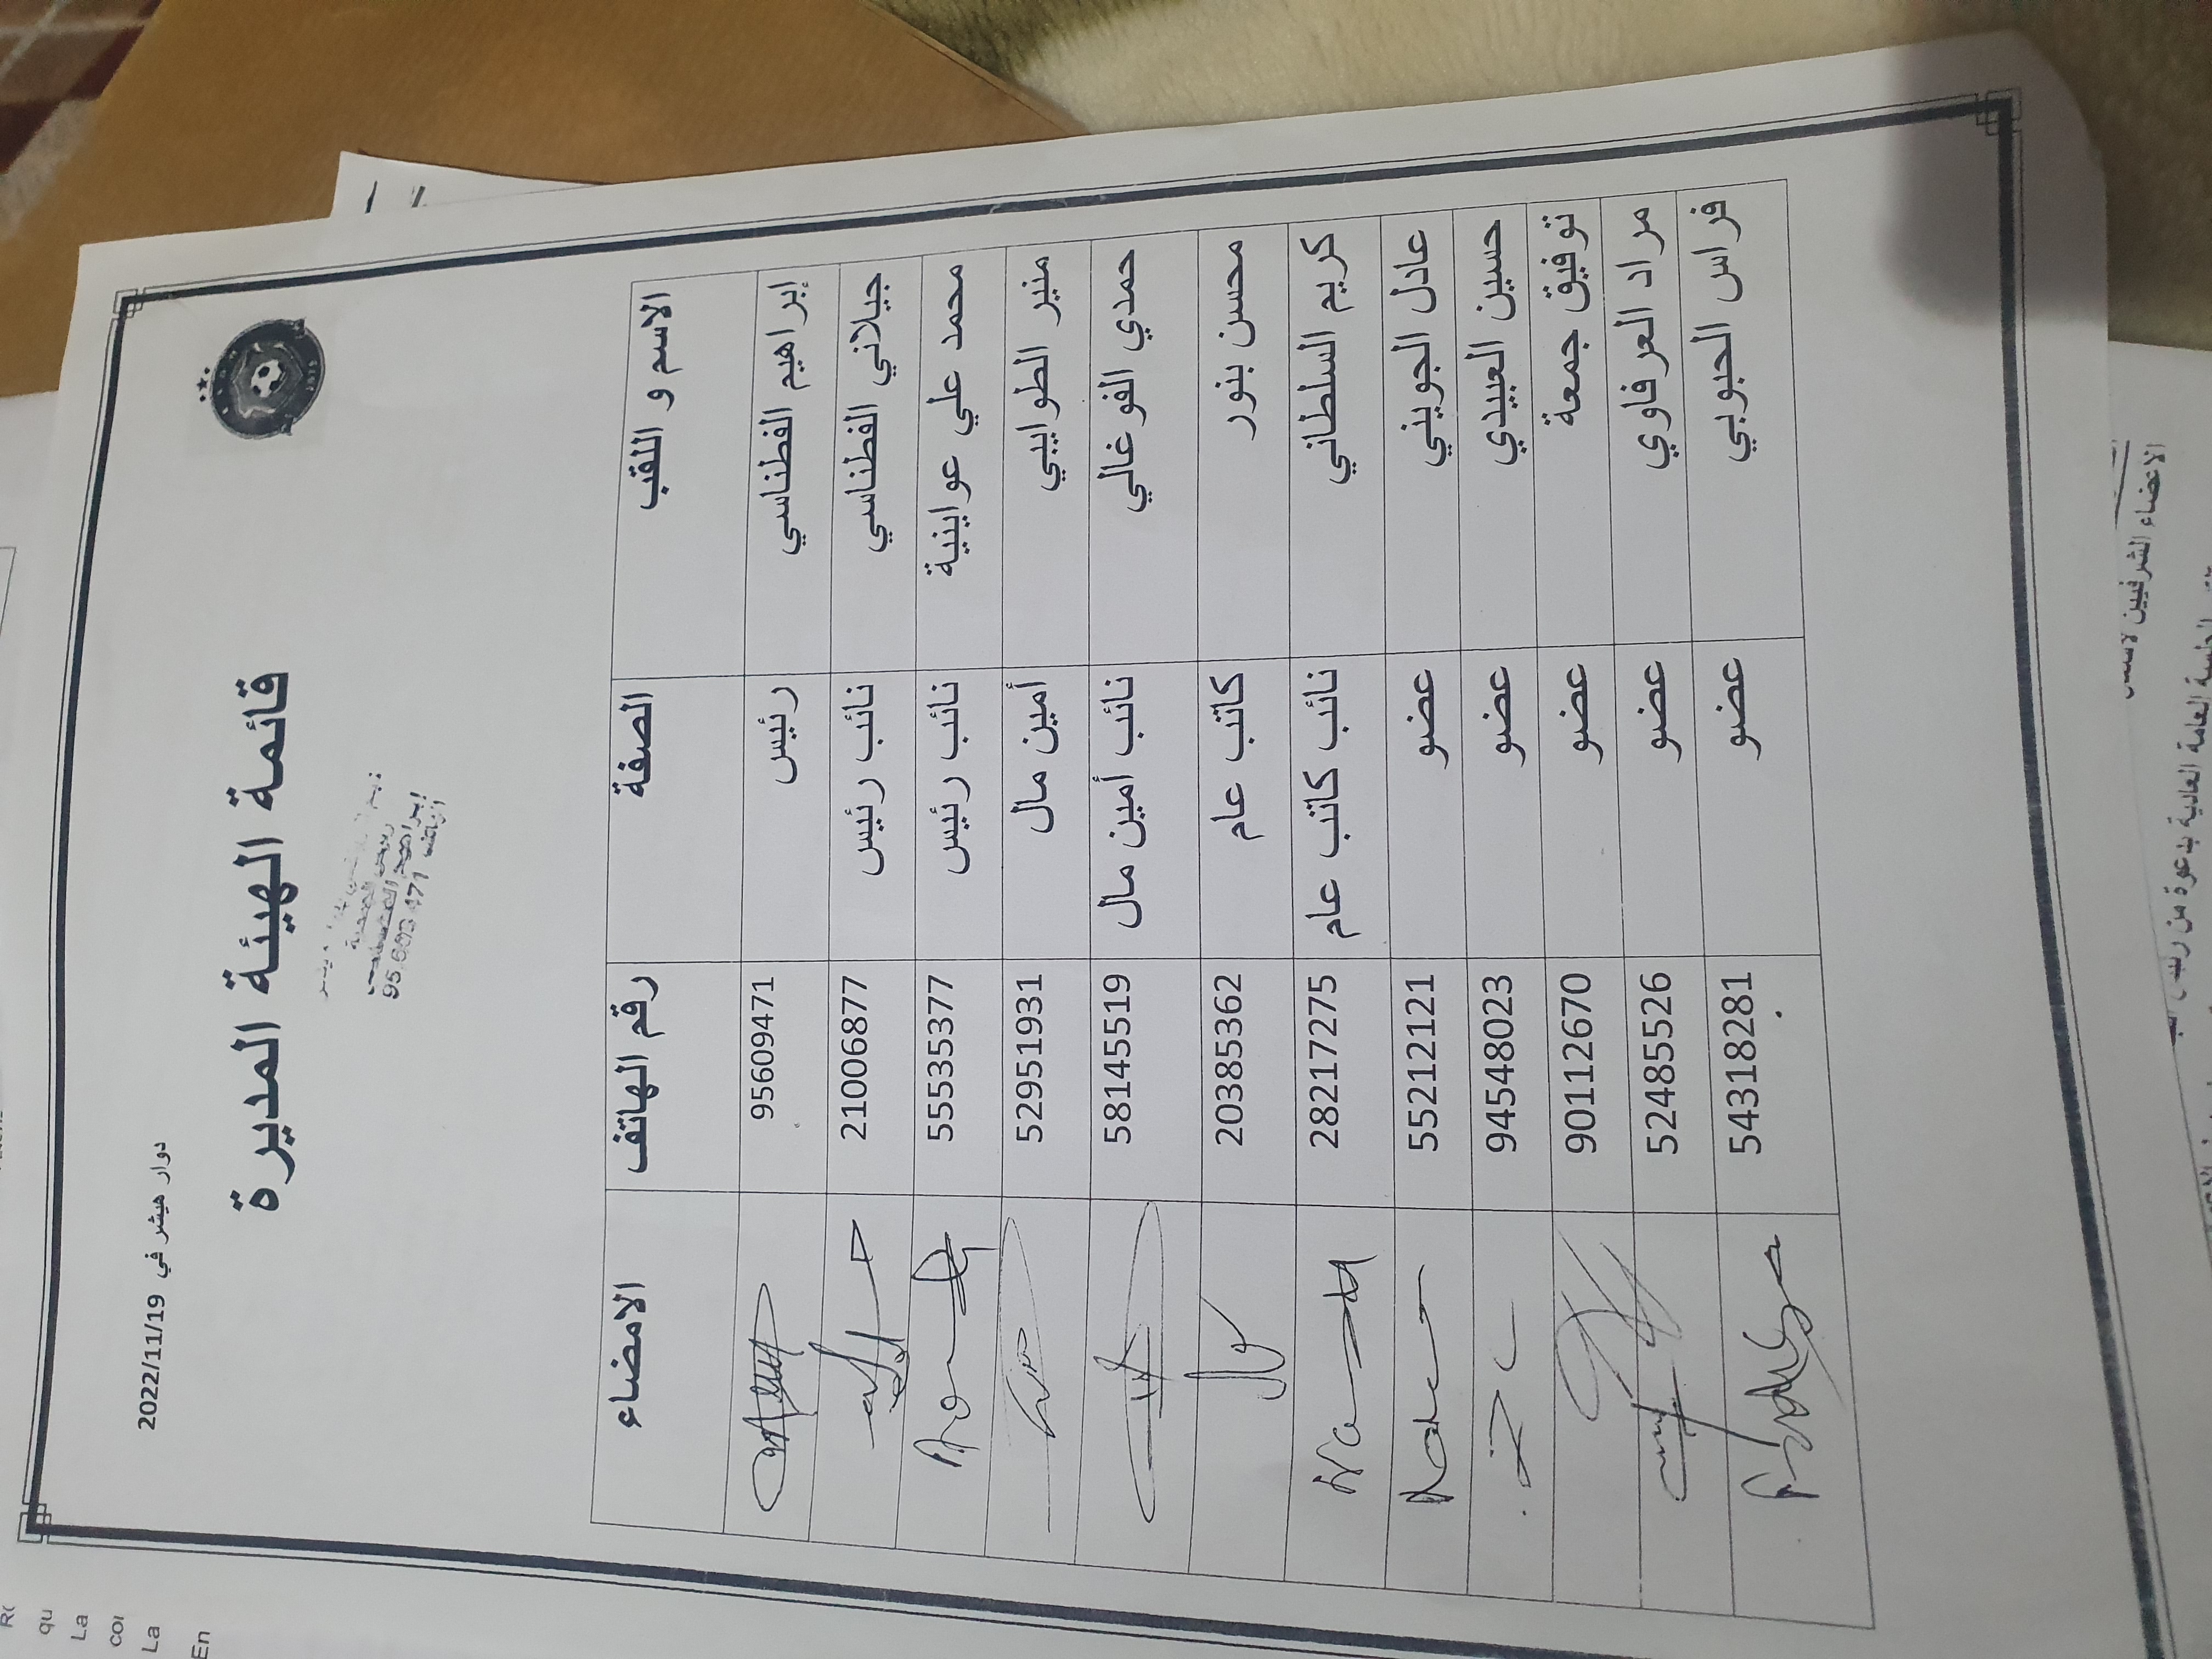 دوار هيشر في 2022/11/19
قائمة الهيئة المديرة
95 609 471
الاسم و اللقب الصفة رقم الهاتف الامضاء
إبراهيم الفطناسي رئيس 95609471
جيلاني الفطناسي نائب رئيس 21006877
محمد علي عواينية نائب رئيس 55535377
منير الطوايبي أمين مال 52951931
حمدي الفوغالي نائب أمين مال 58145519
محسن بنور كاتب عام 20385362
كريم السلطاني نائب كاتب عام 28217275
عادل الجويني عضو 55212121
حسين العبيدي عضو 94548023
توفيق جمعة عضو 90112670
مراد العرفاوي عضو 52485526
فراس الحبوبي عضو 54318281
الجلسة العامة العادية بدعوة من
qu
La
La
En